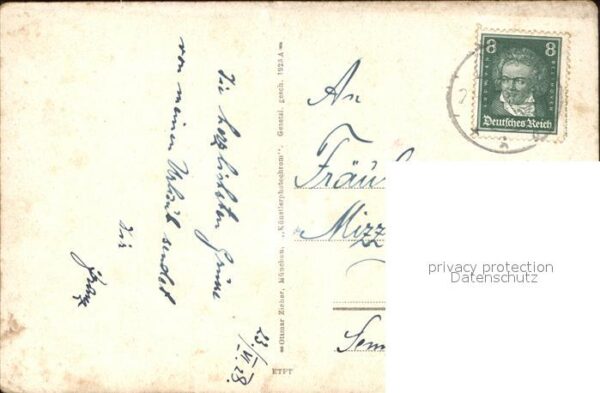 Die herzlichsten Grüsse
von meinem Urlaub sendet
Dir
Franz
23./VI.28.
=Ottmar Zieher, München, „Künstlerphotochrom". Gesetzl. gesch. 1925 A=
ETFT
8 8
BEETHOVEN
Deutsches Reich
An
Fräul
Mizz
Sem
privacy protection
Datenschutz